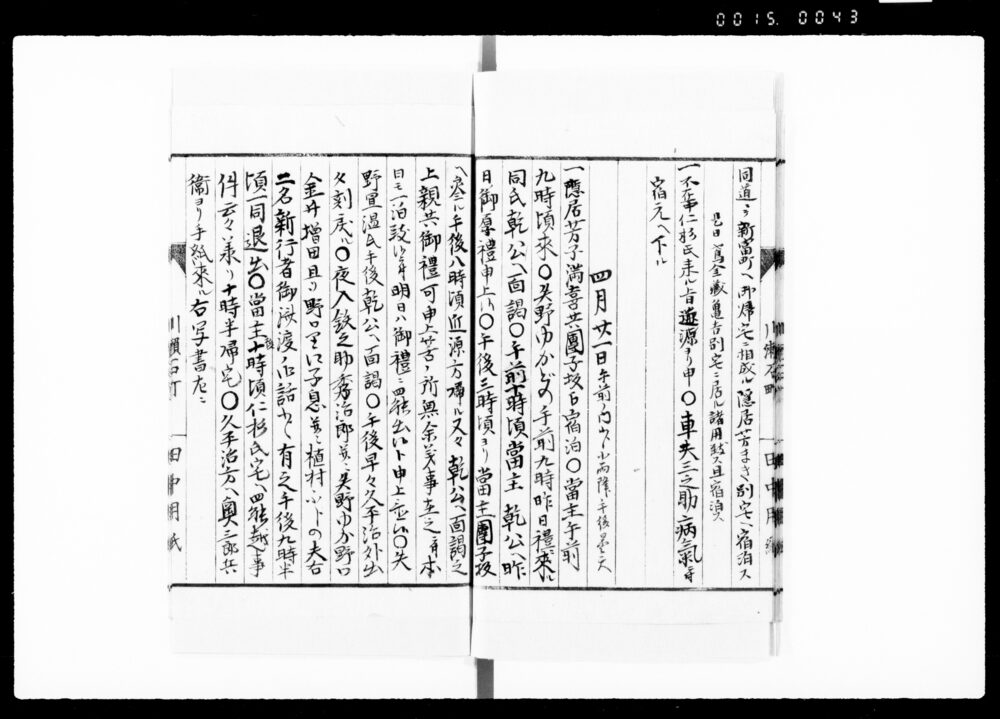 0015. 0043
同道ニテ新富町ヘ御帰宅ニ相成ル隠居芳まき別宅ヘ宿泊ス
是日蔦金蔵亀吉別宅ニ居ル諸用致ス且宿泊ス
一不在中仁杉氏来ル旨近源ヨリ申〇車夫三之助病氣ニ付
宿元ヘ下ル
四月廿一日午前ノ内少シ小雨降午後曇天
一隠居芳子満喜共團子坂ニ宿泊〇當主午前
九時頃来〇矢野ゆか 手前九時昨日禮ニ来ル
同氏乾公ヘ面謁〇午前十時頃當主乾公ヘ昨
日御厚禮申上ル〇午後三時頃ヨリ當主團子坂
ヘ参ル午後八時頃近源方帰ル又々乾公ヘ面謁之
上親共御禮可申上筈ノ所無余義事在之 本
日モ一泊致 明日ハ御禮ニ罷出ルト申上 〇矢
野里温氏午後乾公ヘ面謁〇午後早々久平治外出
夕刻戻ル〇夜入鉄之助秀治郎 矢野ゆか野口
金井増田且ツ野口 子息 植村 の夫右
二名新行者御誠渡ノ御話 有之午後九時半
頃一同退出〇當主十時頃仁杉氏宅ヘ罷越 事
件云々承リ十時半帰宅〇久平治方ヘ奥三郎兵
衛ヨリ手紙来ル右写書左ニ
川瀬石町
田中用紙
川瀬石町
田中用紙